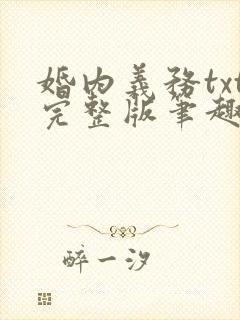 婚内義務txt
完整版筆趣
醉一汐